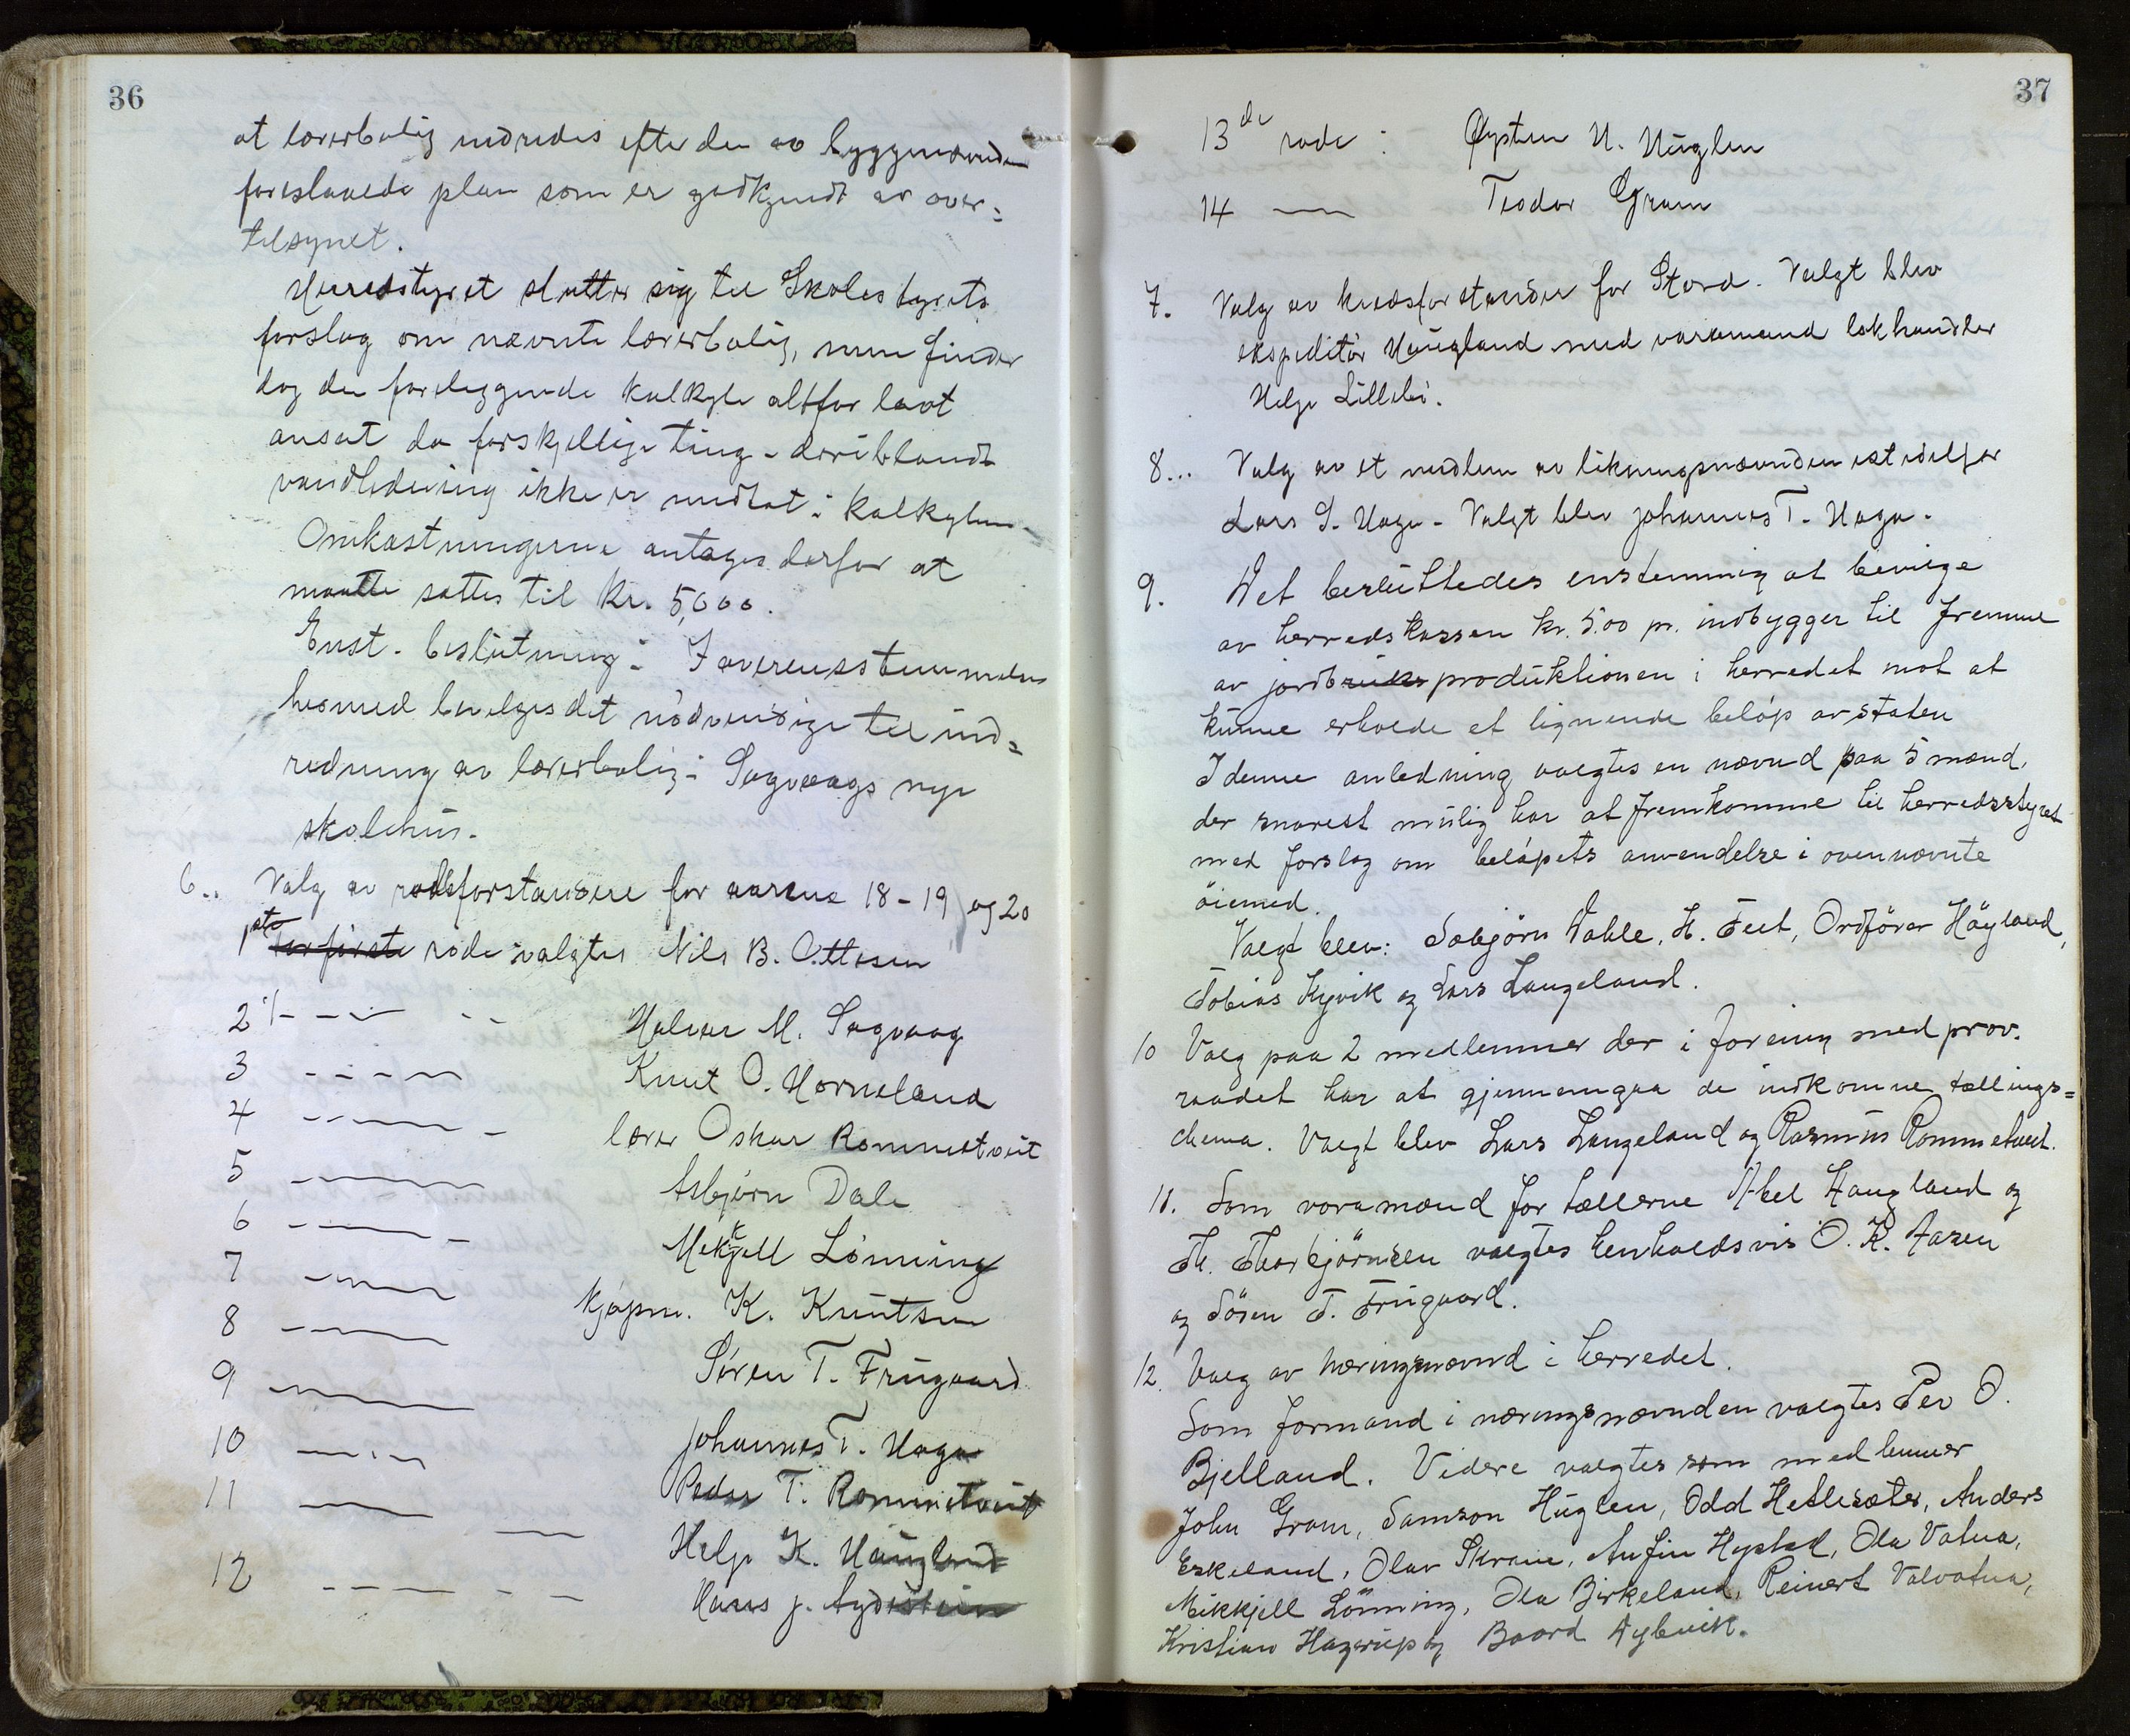 36
at lærerbolig indredes efter den av byggenævnden
foreslaaede plan som er godkjendt av over=
tilsynet.
Herredstyret slutter sig til Skolestyrets
forslag om nævnte lærerbolig, men finder
dog den foreliggende kalkyle altfor lavt
ansat da forskjellige ting - deriblandt
vandledning ikke er medtat i kalkylen.
Omkostningerne antages derfor at
maatte sættes til kr. 5,000.
Enst. beslutning: I overensstemmelse
hermed bevilges det nödvendige til ind=
redning av lærerbolig i Sagvaags nye
skolehus.
6.. Valg av rodsforstandere for aarene 18-19 og 20
1ste For förste rode valgtes Nils B. Ottesen
2 Halvar M. Sagvaag
3 Knut O. Horneland
4 lærer Oskar Rommetveit
5 Asbjörn Dale
6 Mekjell Lönning
7 kjöpm. K. Knutsen
8 Sören T. Frugaard
9 Johannes T. Haga
10 Peder T. Rommetveit
11 Helge K. Haugland
12 Hans J. Aydstein
37
13de rode: Øystein H. Huglen
14 — Teodor Gram
7. Valg av kredsforstander for Stord. Valgt blev
ekspeditör Haugland med varamand lokhandler
Helge Lillebö.
8... Valg av et medlem av likningsnævnden istedetfor
Lars S. Haga - Valgt blev Johannes T. Haga.
9. Det besluttedes enstemmig at bevilge
av herredskassen kr. 5.00 pr. indbygger til fremme
av jordbruks produktionen i herredet mot at
kunne erholde et lignende belöp av staten
I denne anledning valgtes en nævnd paa 5 mænd,
der snarest mulig har at fremkomme til herredsstyret
med forslag om belöpets anvendelse i ovennævnte
öiemed.
Valgt blev: Sæbjörn Dahle, H. Feet, Ordförer Höyland,
Tobias Kyvik og Lars Langeland.
10 Valg paa 2 medlemmer der i forening med prov.
raadet har at gjennemgaa de indkomne tællings=
chema. Valgt blev Lars Langeland og Rasmus Rommetveit.
11. Som varamænd for tællerne Abel Haugland og
Th. Thorbjörnsen valgtes henholdsvis O. K. Aasen
og Sören T. Frugaard.
12. Valg av næringsnævnd i herredet.
Som formand i næringsnævnden valgtes Per O.
Bjelland. Videre valgtes som medlemmer
John Gram, Samson Huglen, Odd Hetlesæter, Anders
Eskeland, Olav Skram, Anfin Hystad, Ola Vatna,
Mikkjell Lönning, Ola Birkeland, Reinert Valvatna,
Kristian Hagerup og Baard Aglevik.